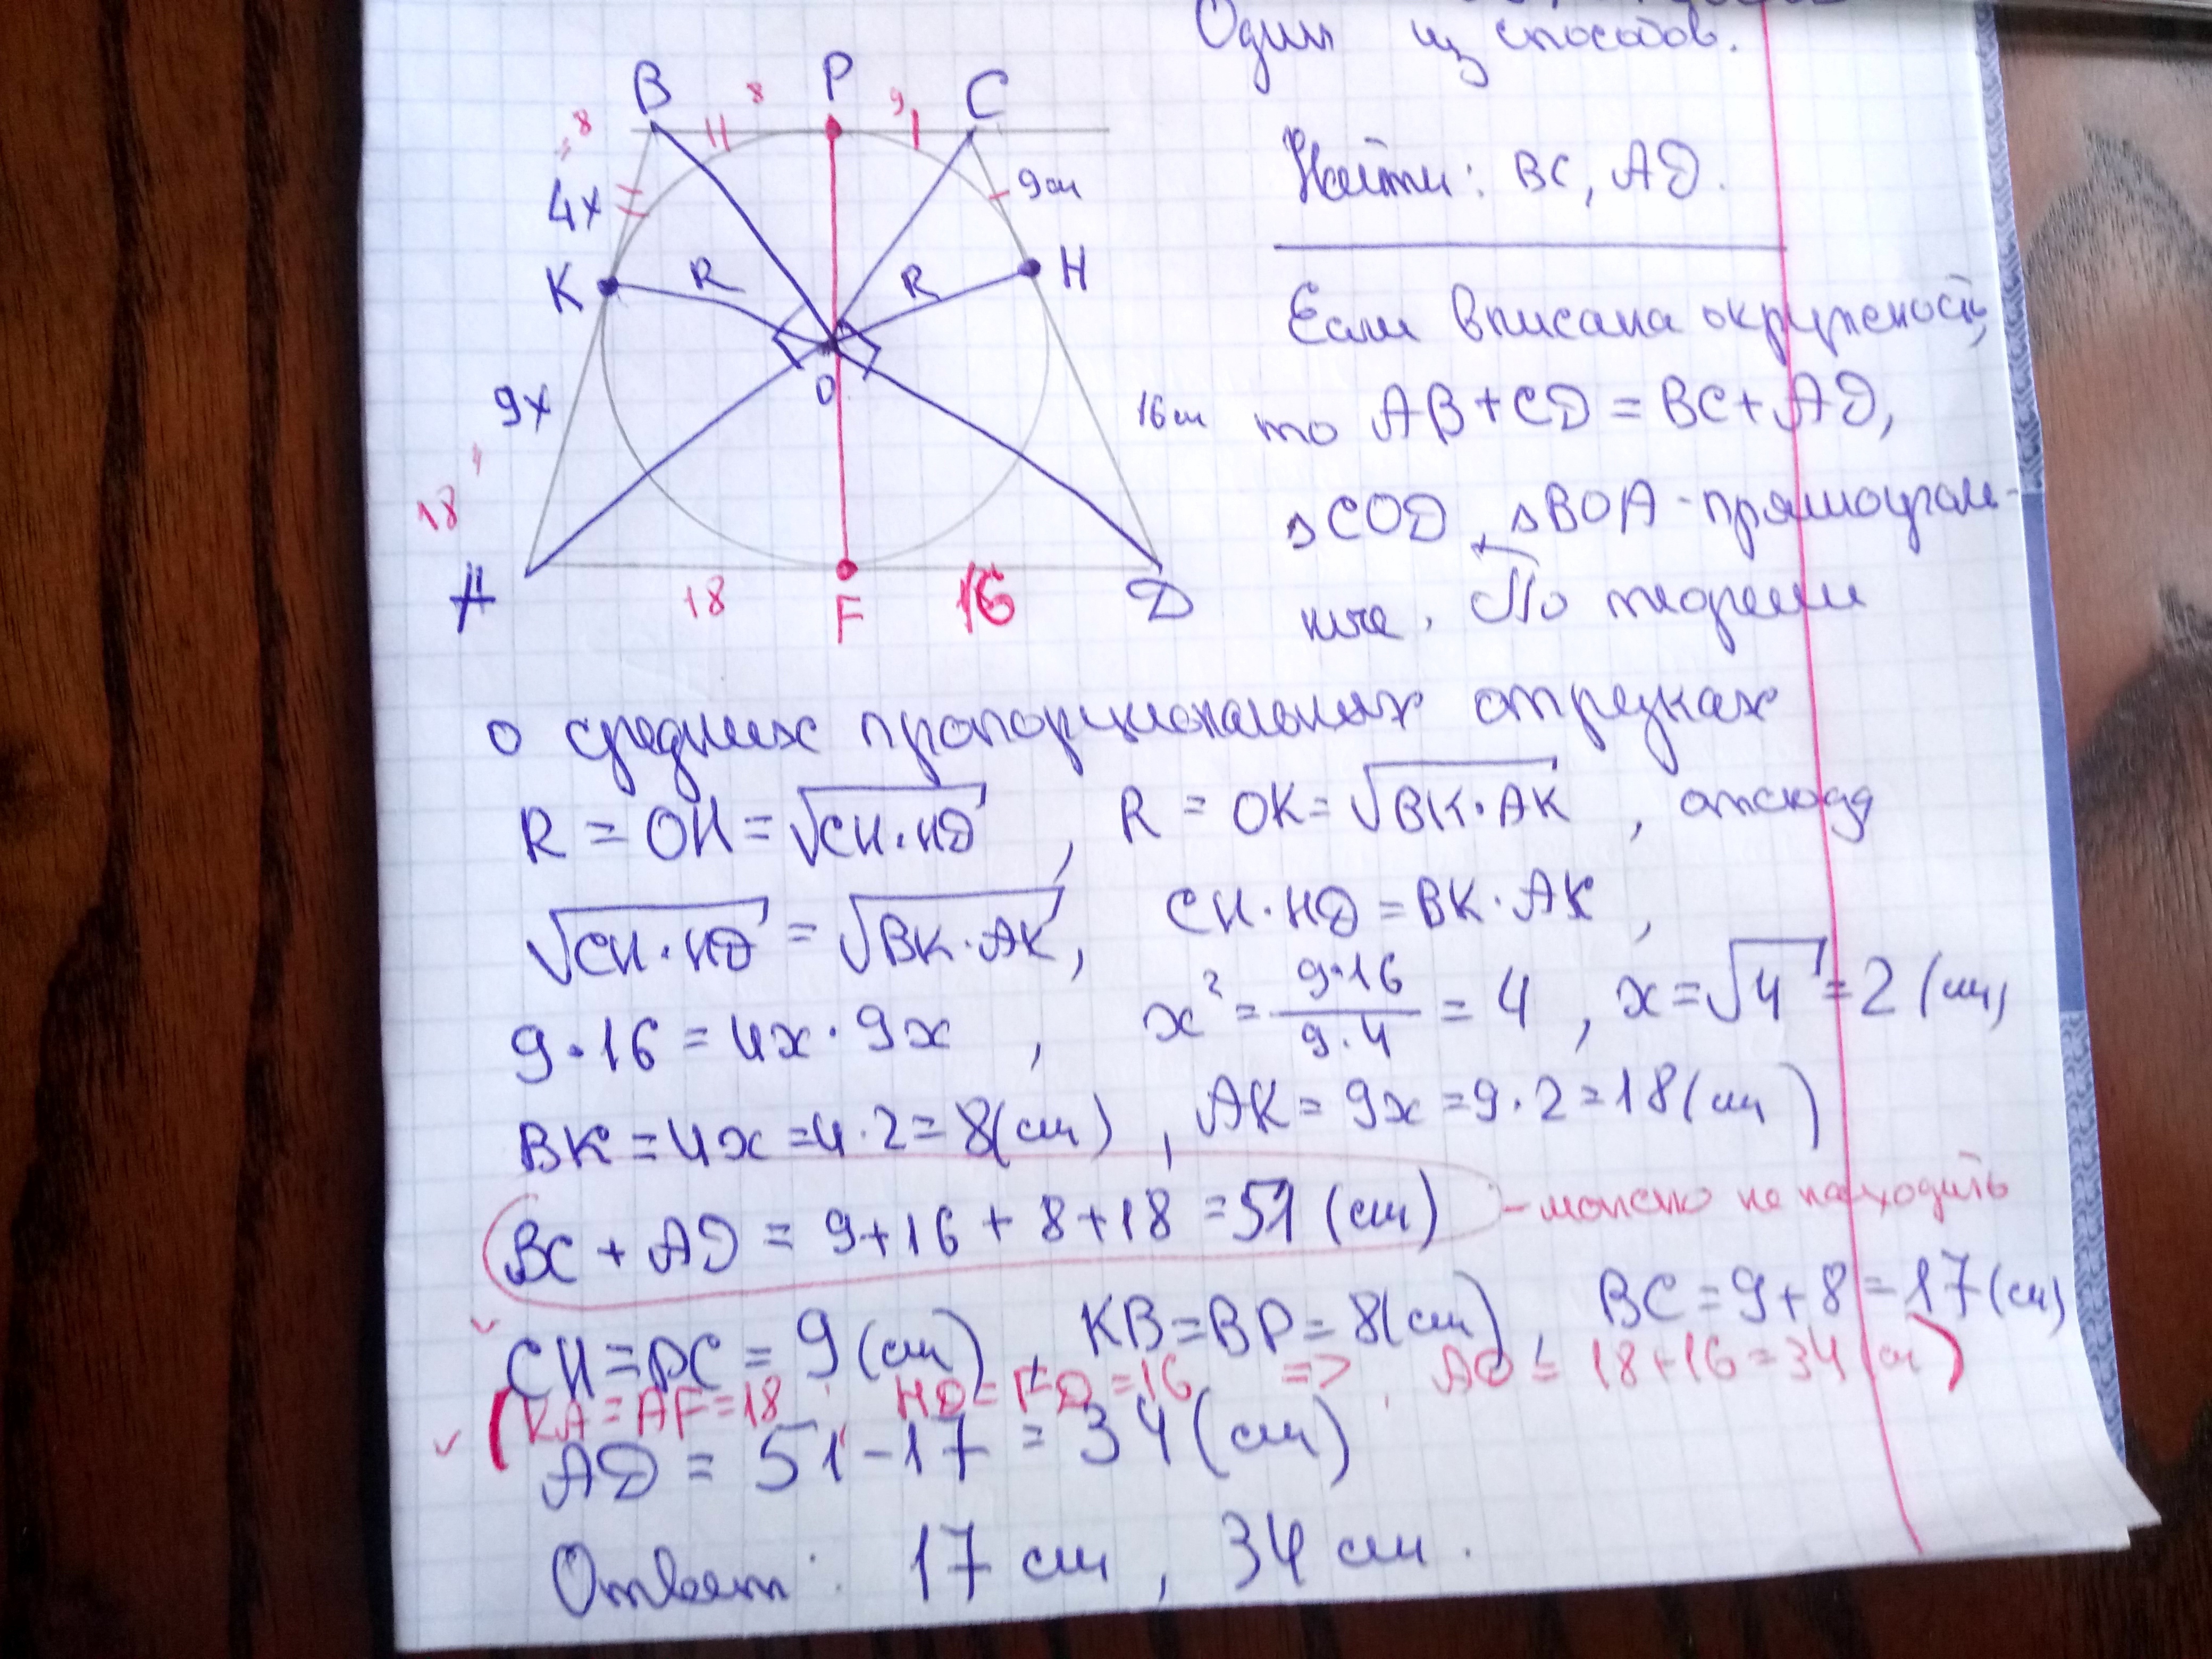 Один из способов.
B 8 P 9 C
= 8
4x
9 см
Найти: BC, AD.
K R R H
Если вписана окружность,
O
9x
16 см
то AB + CD = BC + AD,
18
△COD, △BOA - прямоуголь-
A 18 F 16 D
ные. По теореме
о средних пропорциональных отрезках
R = OH = √CH·HD , R = OK = √BK·AK , отсюда
√CH·HD = √BK·AK, CH·HD = BK·AK ,
9·16 = 4x·9x , x² = 9·16/9·4 = 4 , x = √4 = 2 (см)
BK = 4x = 4·2 = 8 (см) , AK = 9x = 9·2 = 18 (см)
BC + AD = 9 + 16 + 8 + 18 = 51 (см) - можно не находить
CH = PC = 9 (см) , KB = BP = 8 (см) , BC = 9 + 8 = 17 (см)
(KA = AF = 18 , HD = FD = 16 => , AD = 18 + 16 = 34 (см)
AD = 51 - 17 = 34 (см)
Ответ: 17 см , 34 см.